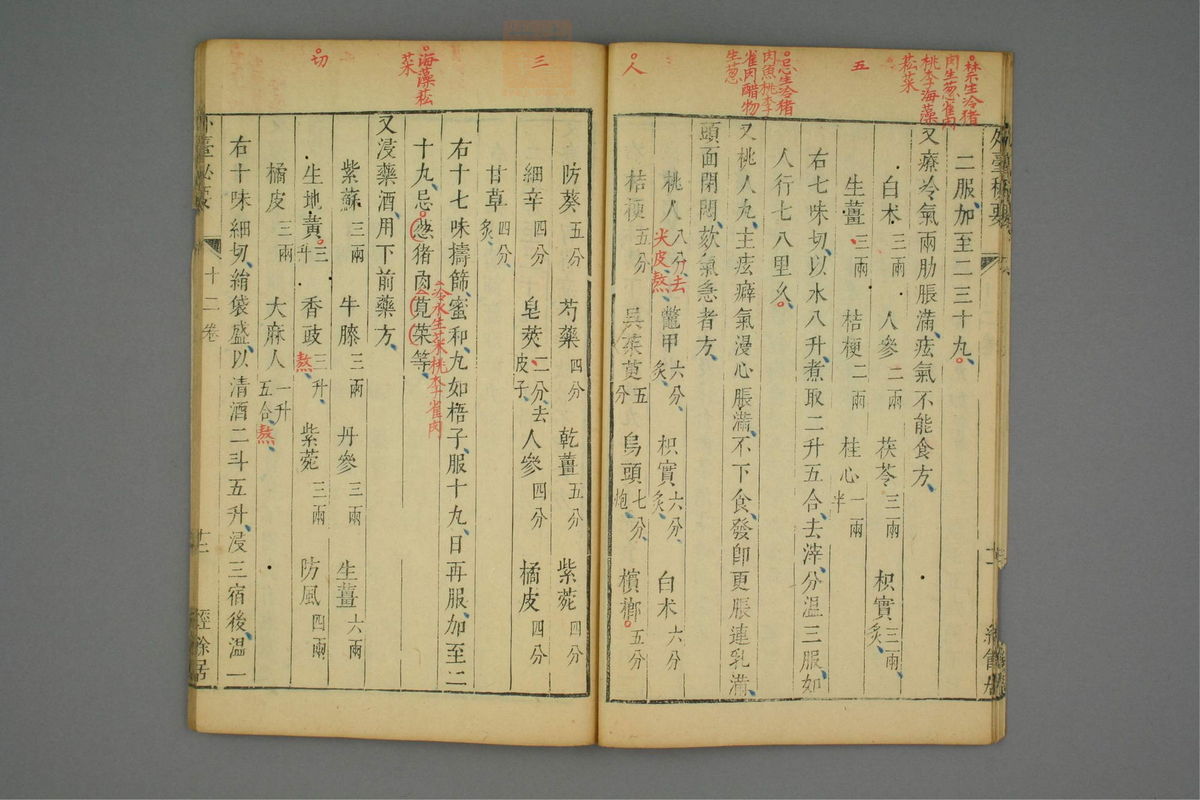 禁生冷猪
肉生葱雀肉
桃李海藻
菘菜
五
忌生冷猪
肉魚桃李
雀肉醋物
生葱
人
二服加至二三十丸
又療冷氣兩肋脹滿痃氣不能食方
白术三兩 人參二兩 茯苓三兩 枳實三兩炙
生薑三兩 桔梗二兩 桂心一兩半
右七味切以水八升煮取二升五合去滓分溫三服如
人行七八里久
又桃人丸主痃癖氣漫心脹滿不下食發即更脹連乳滿
頭面閉悶欬氣急者方
桃人八分去尖皮熬 鼈甲六分炙 枳實六分炙 白术六分
桔梗五分 吳茱萸五分 烏頭七分炮 檳榔五分
三
海藻菘
菜
切
防葵五分 芍藥四分 乾薑五分 紫菀四分
細辛四分 皂莢二分去皮子 人參四分 橘皮四分
甘草四分炙
右十七味擣篩蜜和丸如梧子服十丸日再服加至二
冷水生菜桃李雀肉
十丸忌葱猪肉莧菜等
又浸藥酒用下前藥方
紫蘇三兩 牛膝三兩 丹參三兩 生薑六兩
生地黃三升 香豉三升熬 紫菀三兩 防風四兩
橘皮三兩 大麻人一升五合熬
右十味細切絹袋盛以清酒二斗五升浸三宿後溫一
外臺祕要
十二卷
十二
經餘居